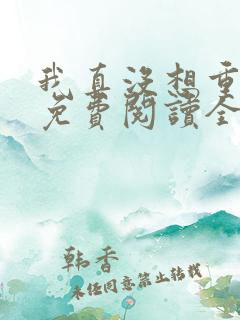 我真没想重
免費閱讀全
韩香
未经同意禁止转载